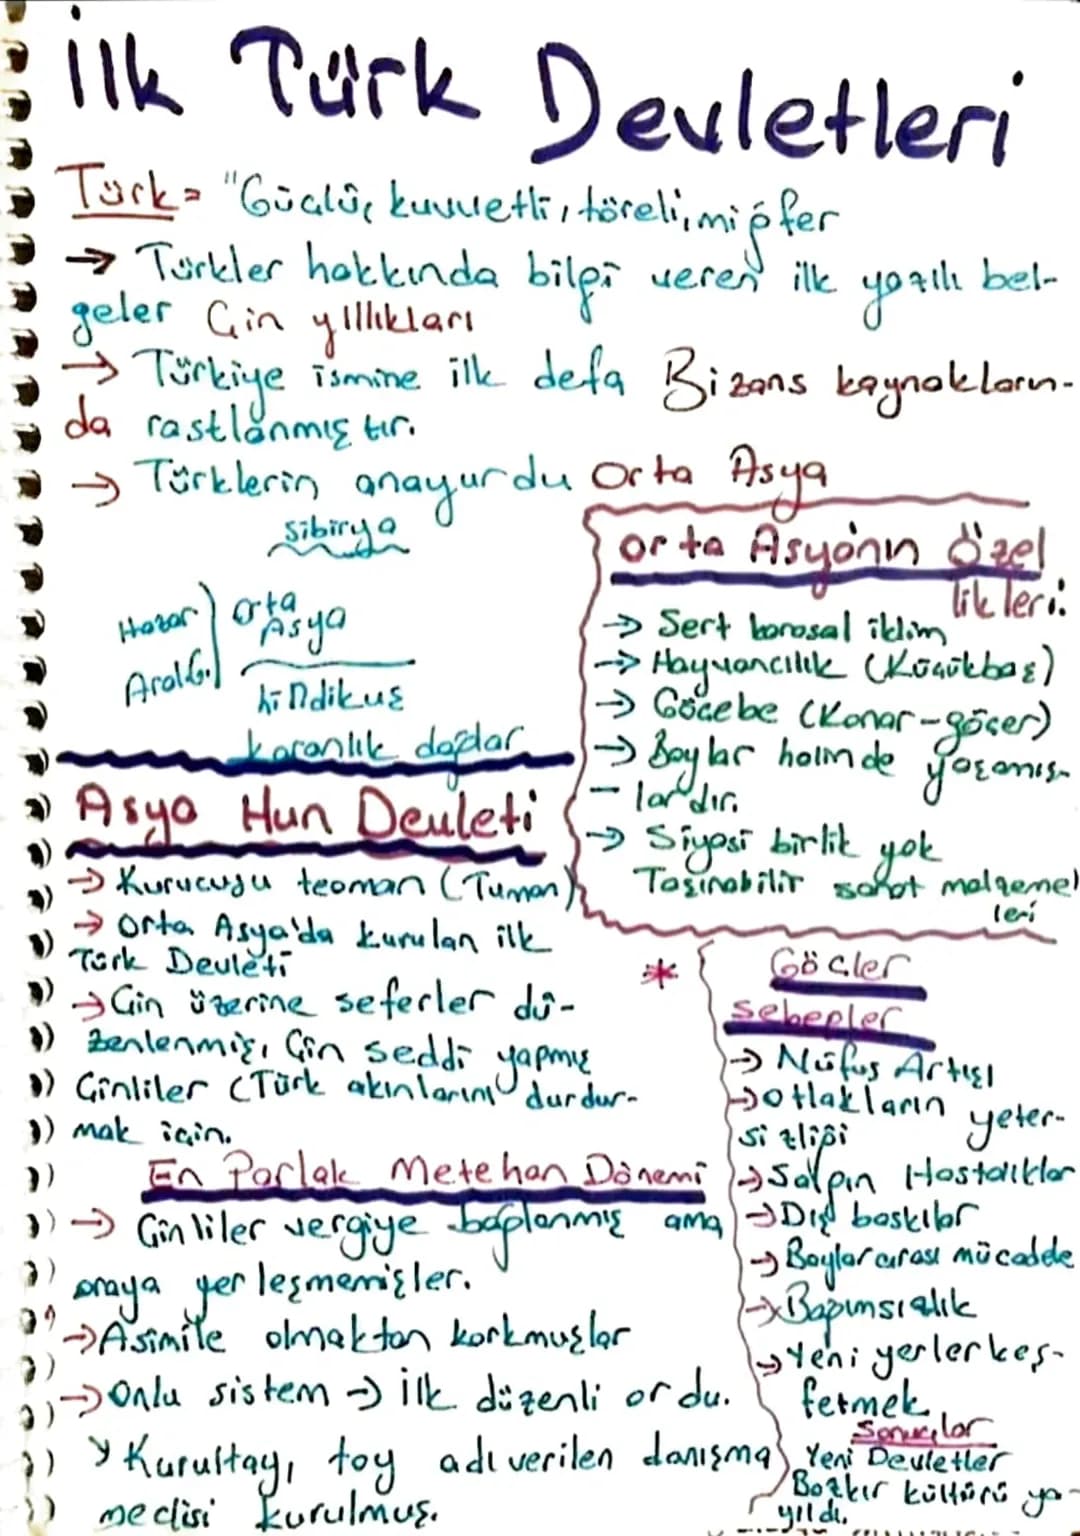 İlk Türk Devletleri
Türk = "Güçlü, kuvvetli, töreli, miğfer
→ Türkler hakkında bilgi veren ilk yazılı bel-
geler Çin yıllıkları
→ Türkiye ismine ilk defa Bizans kaynakların-
da rastlanmıştır.
→ Türklerin anayurdu Orta Asya
Sibirya
Hazar
Aral G.
Orta
Asya
hindikuş
karanlık dağlar
Orta Asya'nın Özel
likleri:
→ Sert karasal iklim
→ Hayvancılık (Küçükbaş)
→ Göçebe (Konar-göçer)
→ Boylar halinde yaşamış-
lardır.
→ Siyasi birlik yok
Taşınabilir sanat malzemel
leri
Asya Hun Devleti
→ Kurucusu teoman (Tuman)
→ Orta Asya'da kurulan ilk
Türk Devleti
→ Çin üzerine seferler dü-
zenlenmiş, Çin seddi yapmış
Çinliler (Türk akınlarını durdur-
mak için.
En Parlak Metehan Dönemi
→ Çinliler vergiye bağlanmış ama
oraya yerleşmemişler.
→ Asimile olmaktan korkmuşlar
→ Onlu sistem → İlk düzenli ordu.
Kurultay, toy adı verilen danışma
meclisi kurulmuş.
* Göçler
Sebepler
→ Nüfus Artışı
→ Otlakların yeter-
sizliği
→ Salgın Hastalıklar
→ Dış baskılar
→ Boylar arası mücadele
→ Bağımsızlık
→ Yeni yerler keş-
fetmek
Sonuçlar
Yeni Devletler
Bozkır kültürü ya-
yıldı.